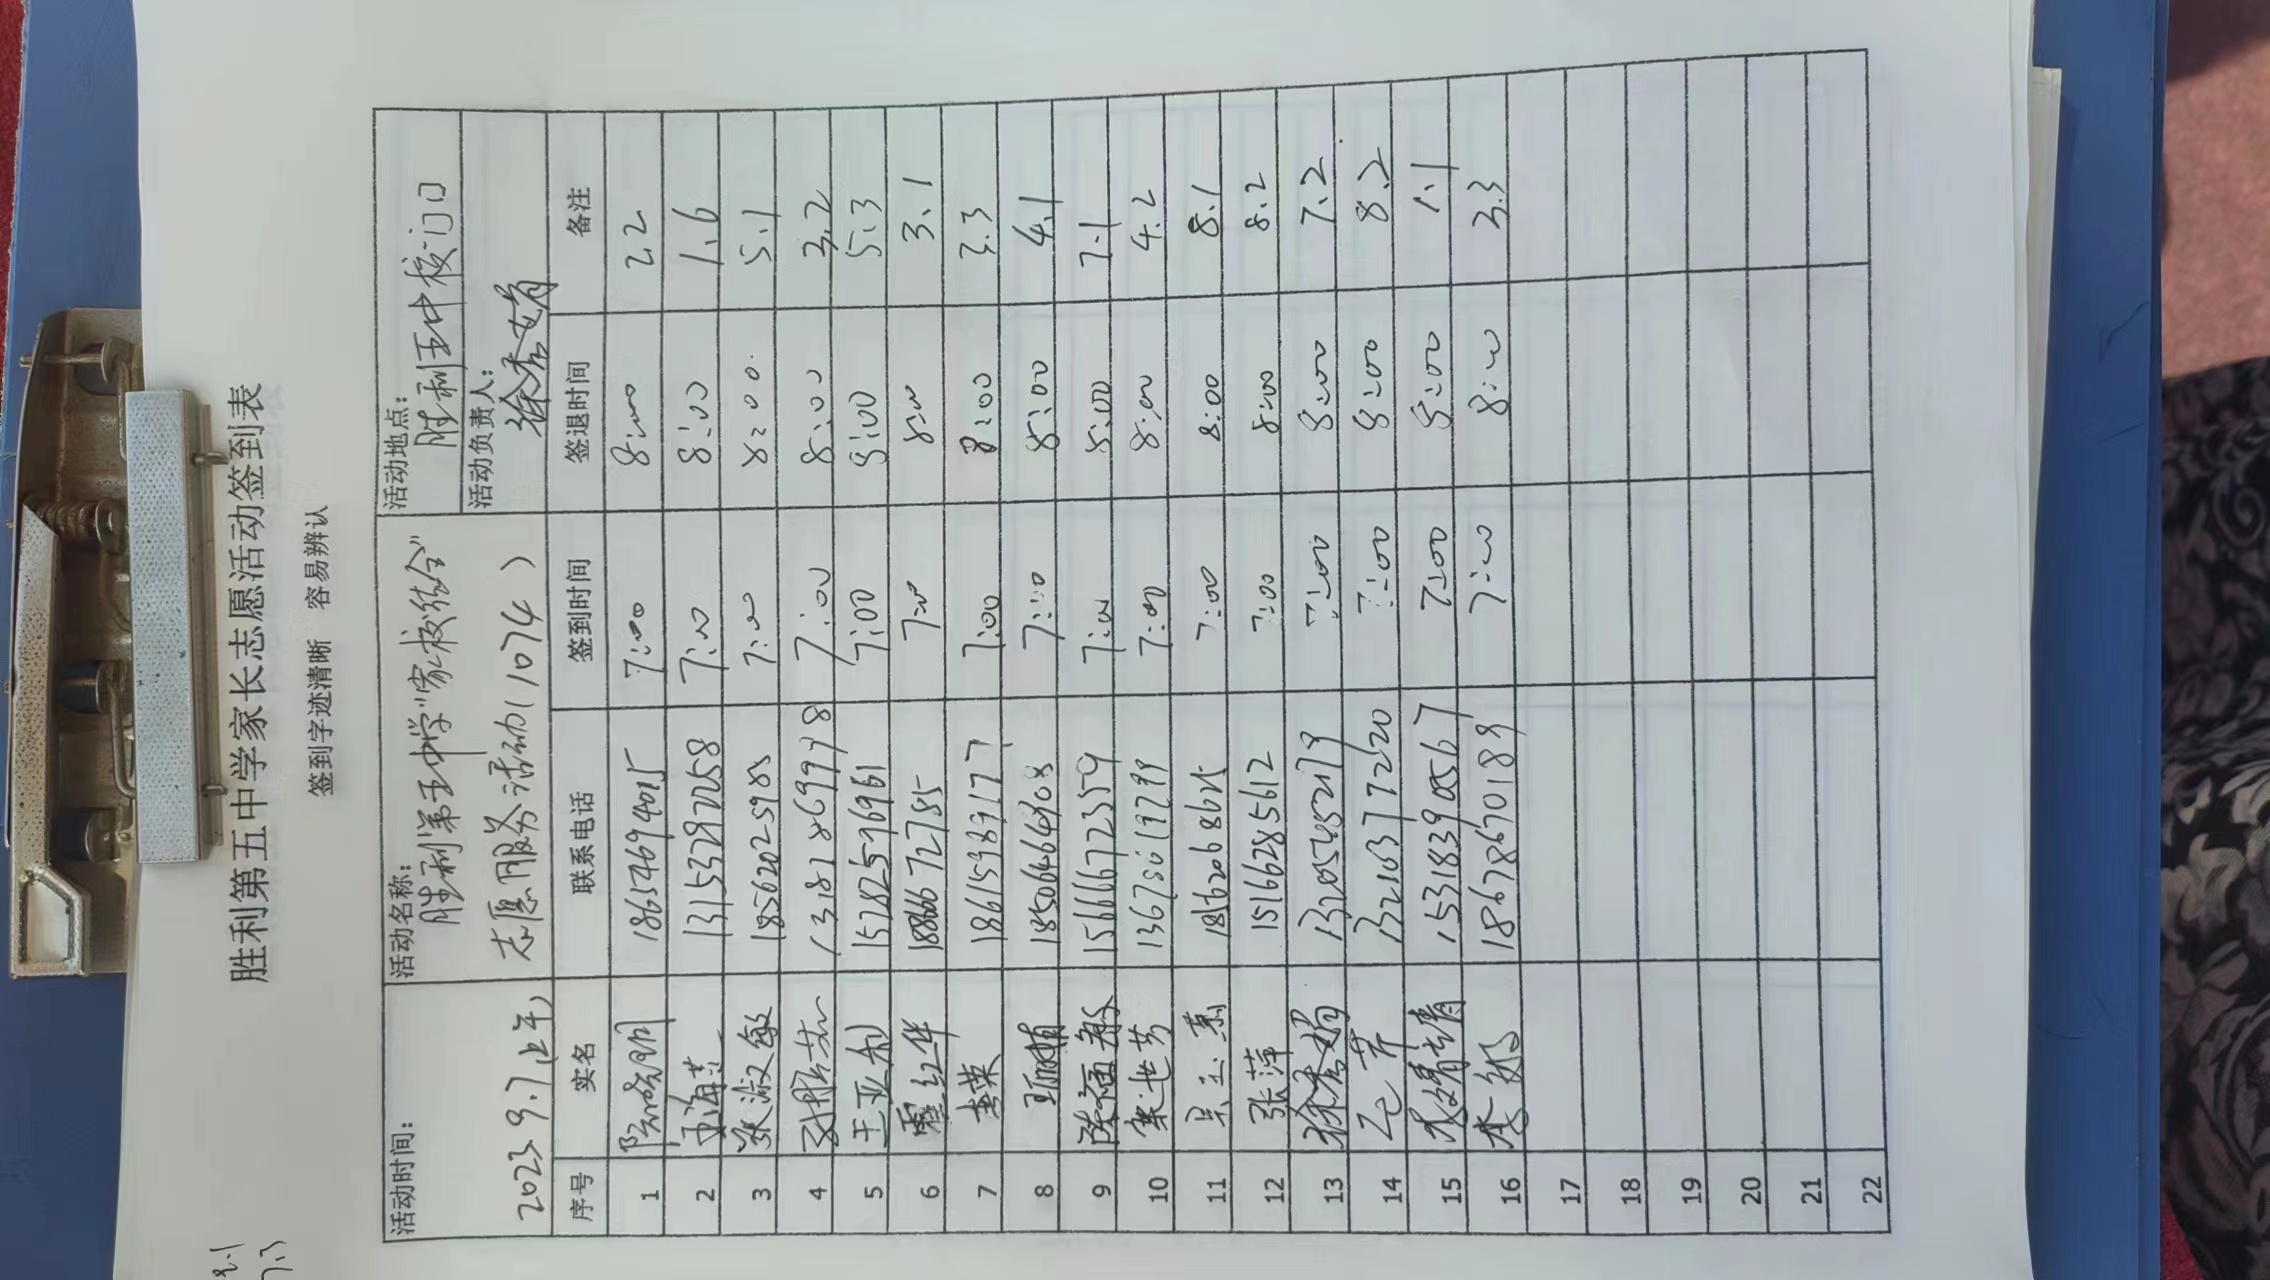 胜利第五中学家长志愿活动签到表
签到字迹清晰 容易辨认
活动时间: 2023 9.7(上午) 活动名称: 胜利第五中学“家校结合” 志愿服务活动(1074) 活动地点: 胜利五中校门口
活动负责人: 徐秀娟
序号 实名 联系电话 签到时间 签退时间 备注
1 7:00 8:00 2.2
2 王海燕 7:00 8:00 1.6
3 张淑敏 18562025985 7:00 8:00. 5.1
4 7:00 8:00 3.2
5 王亚利 15282596961 7:00 8:00 5.3
6 霍红华 18866672785 7:00 8:00 3.1
7 18615989177 7:00 8:00 3.3
8 18506464908 7:00 8:00 4.1
9 15666672359 7:00 8:00 7.1
10 7:00 8:00 4.2
11 吴玉燕 18562068625 7:00 8:00 8.1
12 张萍 15166285612 7:00 8:00 8.2
13 徐秀娟 13205452179 7:00 8:00 7.2
14 7:00 8:00 8.2
15 15318390567 7:00 8:00 1.1
16 18678670189 7:00 8:00 3.3
17
18
19
20
21
22
8.1
7.3